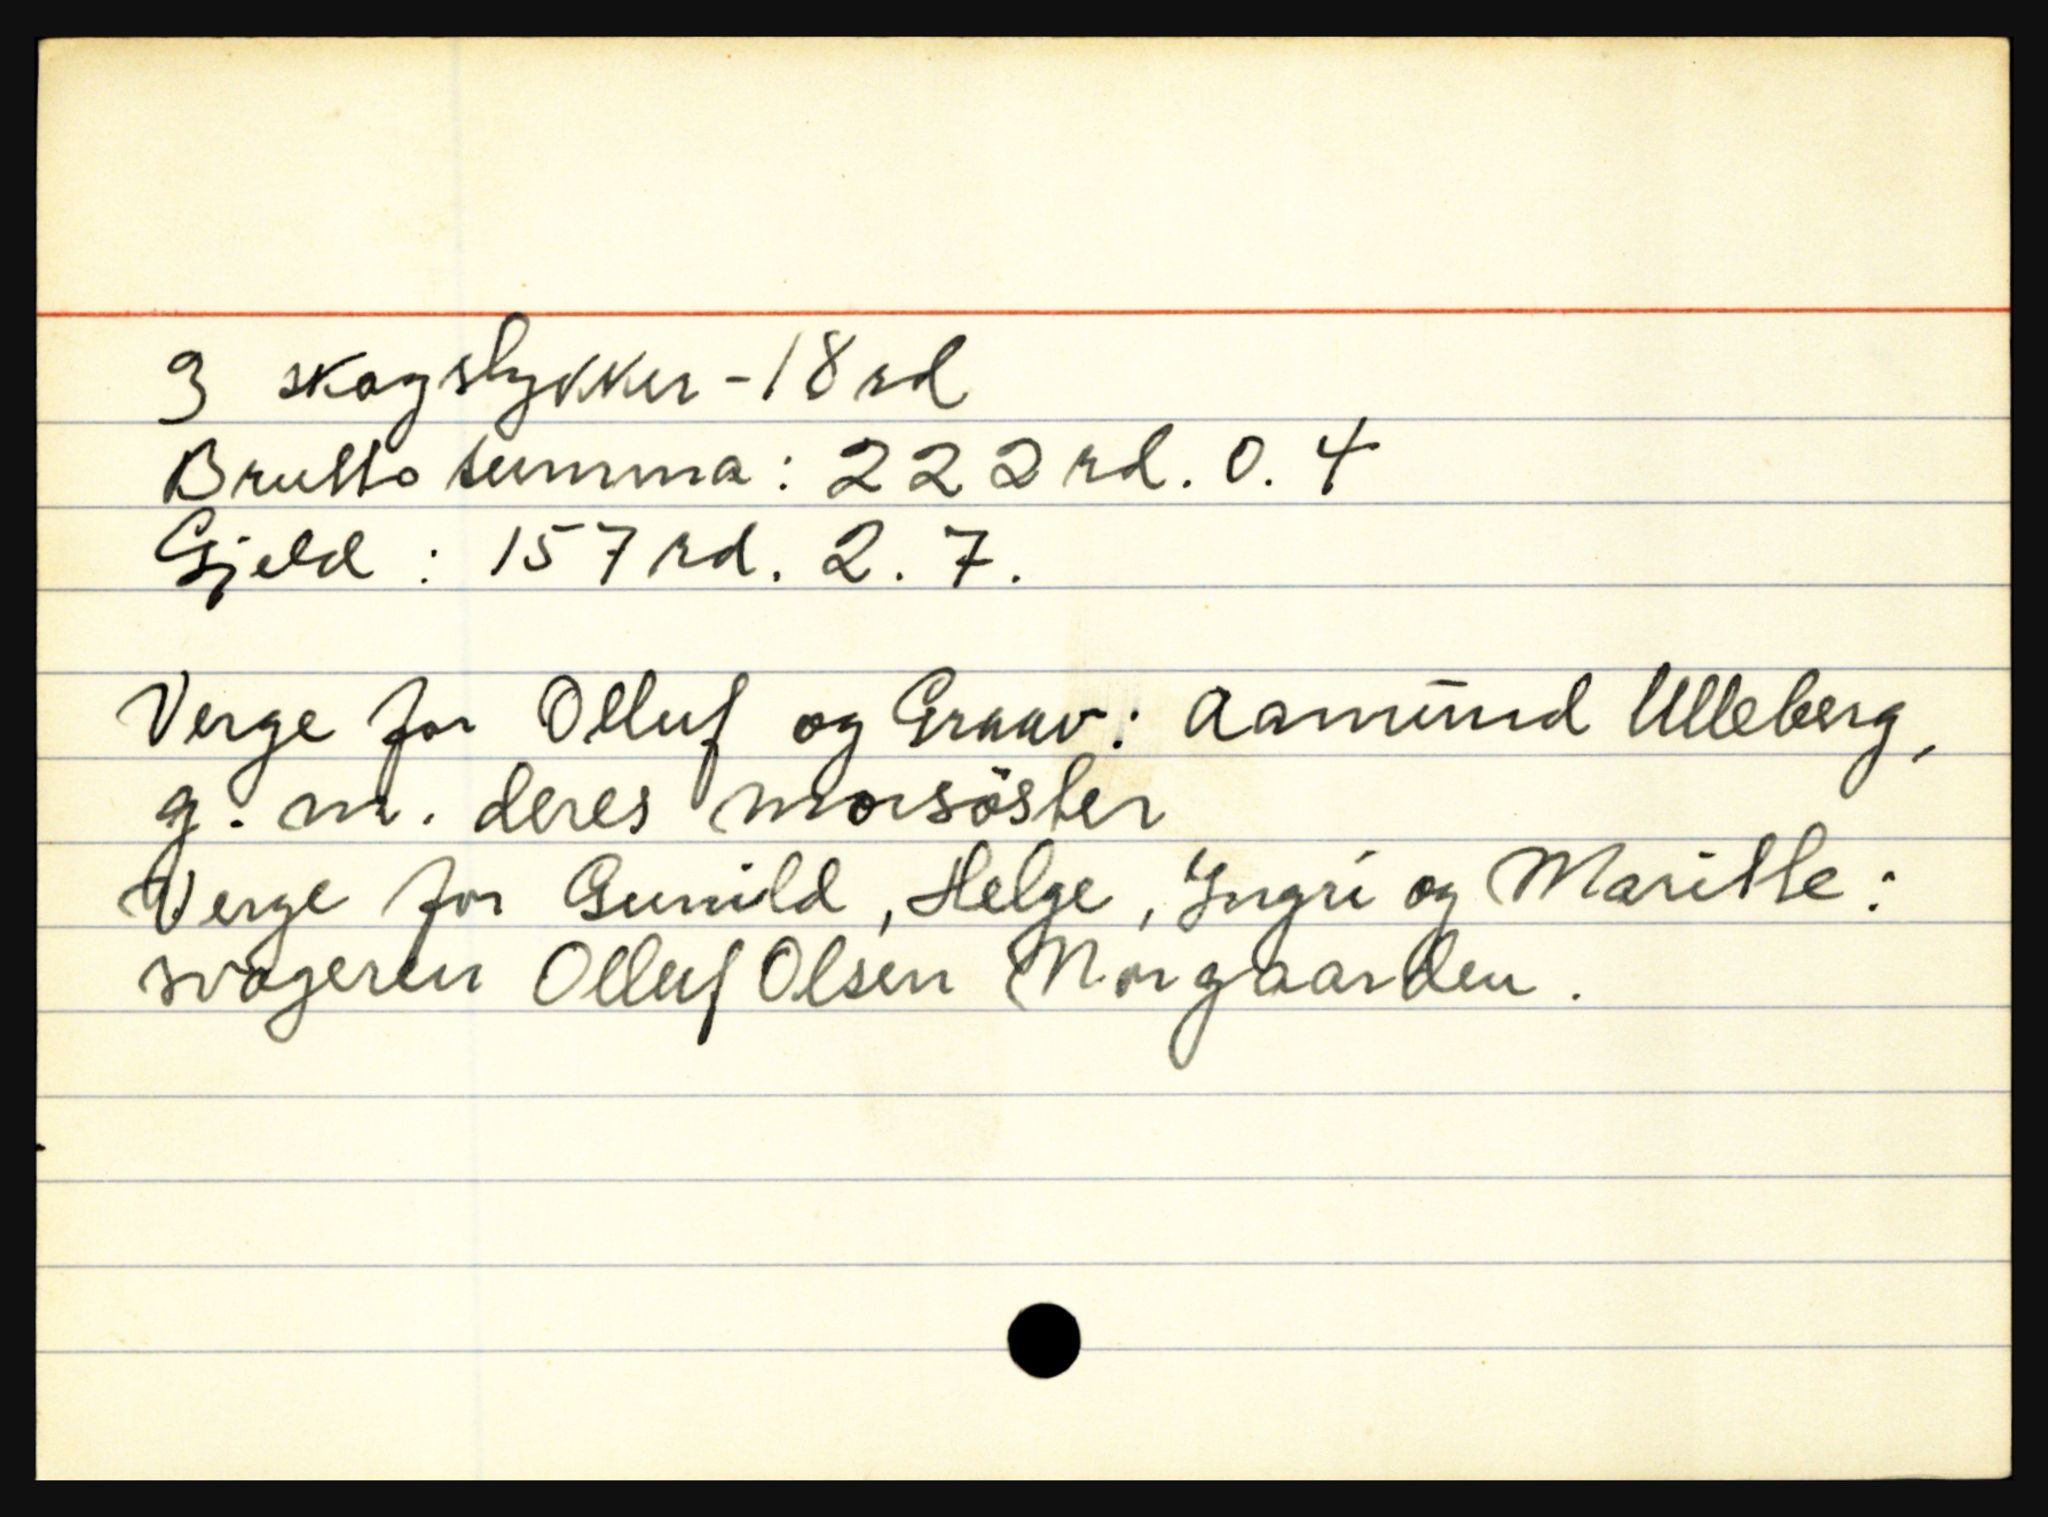 3 skogstykker - 18 rd
Brutto summa: 222 rd. 0. 4
Gjeld : 157 rd. 2. 7.
Verge for Olluf og Graav: Aamund Ulleberg,
g. m. deres morsöster
Verge for Gunild, Helge, Yngri og Maritte:
svogeren Olluf Olsen Norgaarden.